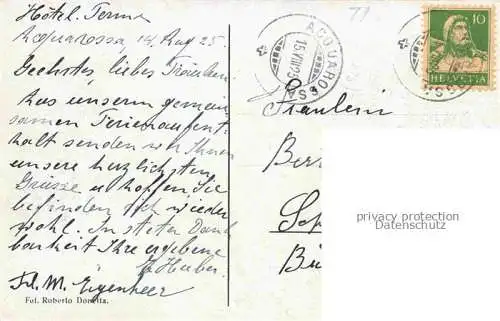 Hôtel. Terme
Acquarossa 14. Aug 25.
Geehrtes, liebes Fräulein.
Aus unserm gemein-
samen Ferienaufent-
halt senden wir Ihnen
unsere herzlichsten
Grüsse u. hoffen Sie
befinden sich wieder
wohl. In steter Dank-
barkeit Ihre ergebene
Huber.
Frl. M. Eigenheer
Fot. Roberto Donetta.
ACQUAROSSA
15.VIII.25
10
HELVETIA
Fräulein
privacy protection
Datenschutz